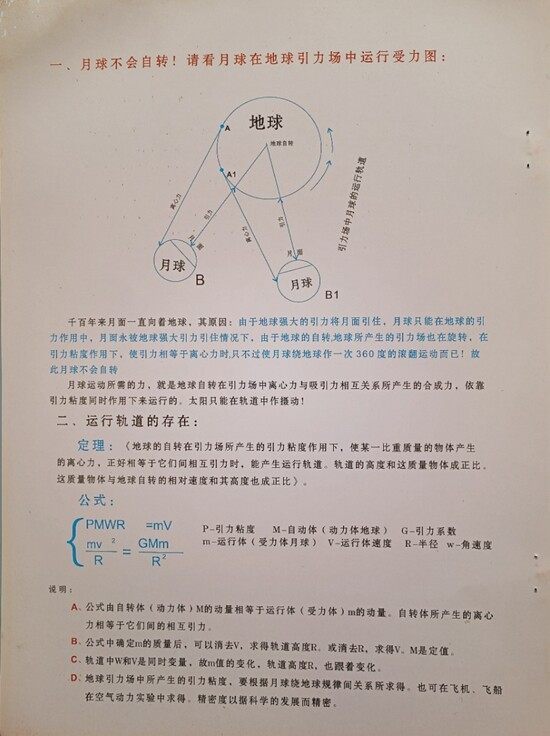 一、月球不会自转！请看月球在地球引力场中运行受力图：
地球
地球自转
A
A1
离心力
引力
月面
月球
B
离心力
引力
月面
月球
B1
引力场中月球的运行轨道
千百年来月面一直向着地球，其原因：由于地球强大的引力将月面引住，月球只能在地球的引
力作用中，月面永被地球强大引力引住情况下，由于地球的自转,地球所产生的引力场也在旋转，在
引力粘度作用下，使引力相等于离心力时,只不过使月球绕地球作一次360度的滚翻运动而已！故
此月球不会自转
月球运动所需的力，就是地球自转在引力场中离心力与吸引力相互关系所产生的合成力，依靠
引力粘度同时作用下来运行的。太阳只能在轨道中作摄动！
二、运行轨道的存在：
定理：（地球的自转在引力场所产生的引力粘度作用下，使某一比重质量的物体产生
的离心力，正好相等于它们间相互引力时，能产生运行轨道。轨道的高度和这质量物体成正比。
这质量物体与地球自转的相对速度和其高度也成正比）。
公式：
PMWR =mV
mv²/R = GMm/R²
P-引力粘度 M-自动体（动力体地球） G-引力系数
m-运行体（受力体月球） V-运行体速度 R-半径 w-角速度
说明：
A、公式由自转体（动力体）M的动量相等于运行体（受力体）m的动量。自转体所产生的离心
力相等于它们间的相互引力。
B、公式中确定m的质量后，可以消去V，求得轨道高度R。或消去R，求得V。M是定值。
C、轨道中W和V是同时变量，故m值的变化，轨道高度R、也跟着变化。
D、地球引力场中所产生的引力粘度，要根据月球绕地球规律间关系所求得。也可在飞机、飞船
在空气动力实验中求得。精密度以据科学的发展而精密。